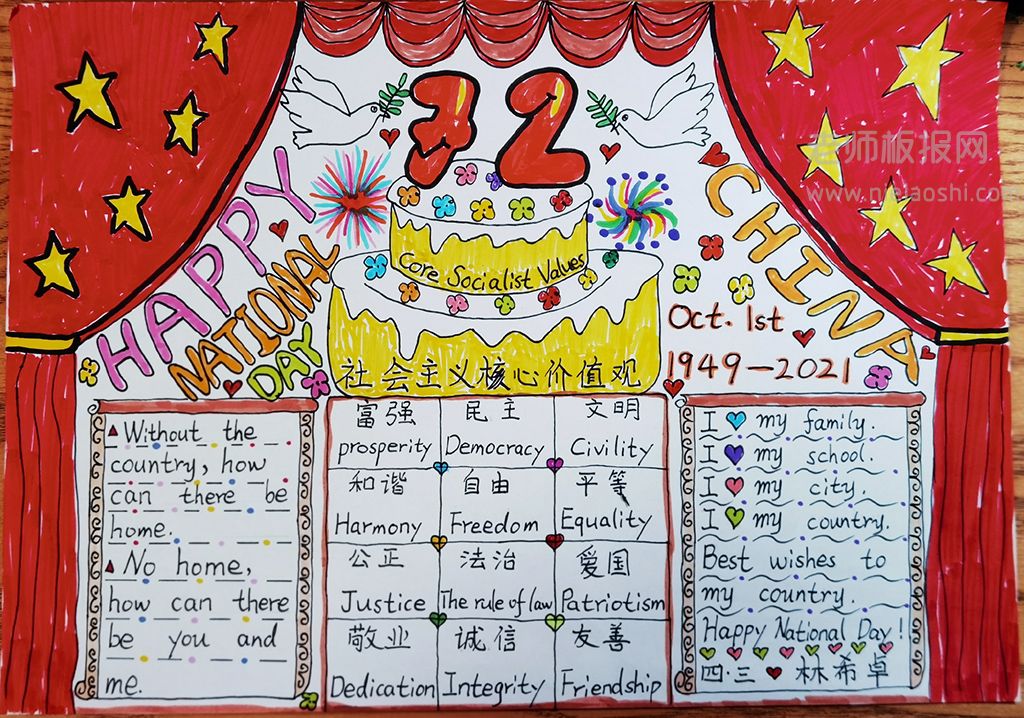 72
HAPPY
NATIONAL
DAY
CHINA
老师板报网
Core Socialist Values
社会主义核心价值观
Oct. 1st
1949—2021
Without the
country, how
can there be
home.
No home,
how can there
be you and
me.
富强 民主 文明
prosperity Democracy Civility
和谐 自由 平等
Harmony Freedom Equality
公正 法治 爱国
Justice The rule of law Patriotism
敬业 诚信 友善
Dedication Integrity Friendship
I my family.
I my school.
I my city.
I my country.
Best wishes to
my country.
Happy National Day!
四·三 林希卓